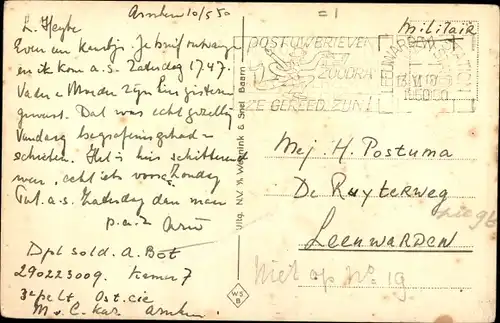 Arnhem 10/5 50
L. Heybe
Even een kaartje. Je brief ontvangen
en ik kom a.s. Zaterdag 17.47.
Vader en Moeder zijn hier gisteren
geweest. Dat was echt gezellig
Vandaag begrafenis gehad
schieten. Het is hier schitterend
weer, echt iets voor Zonday
Tot a.s. Zaterdag dan maar
p.a.z. Arie
Dpl sold. A. Bot
290223009. Kamer 7
3e pelt. Ost. cie
M.v.C. kaz. Arnhem
Uitg. N.V. v/h Weenink & Snel Baarn
WS
B
= 1
Militair
POST UW BRIEVEN
ZOODRA
ZE GEREED ZIJN!
LEEUWARDEN
1950
Mej H. Postuma
De Ruyterweg
Leeuwarden
zie 98
Niet op No 19